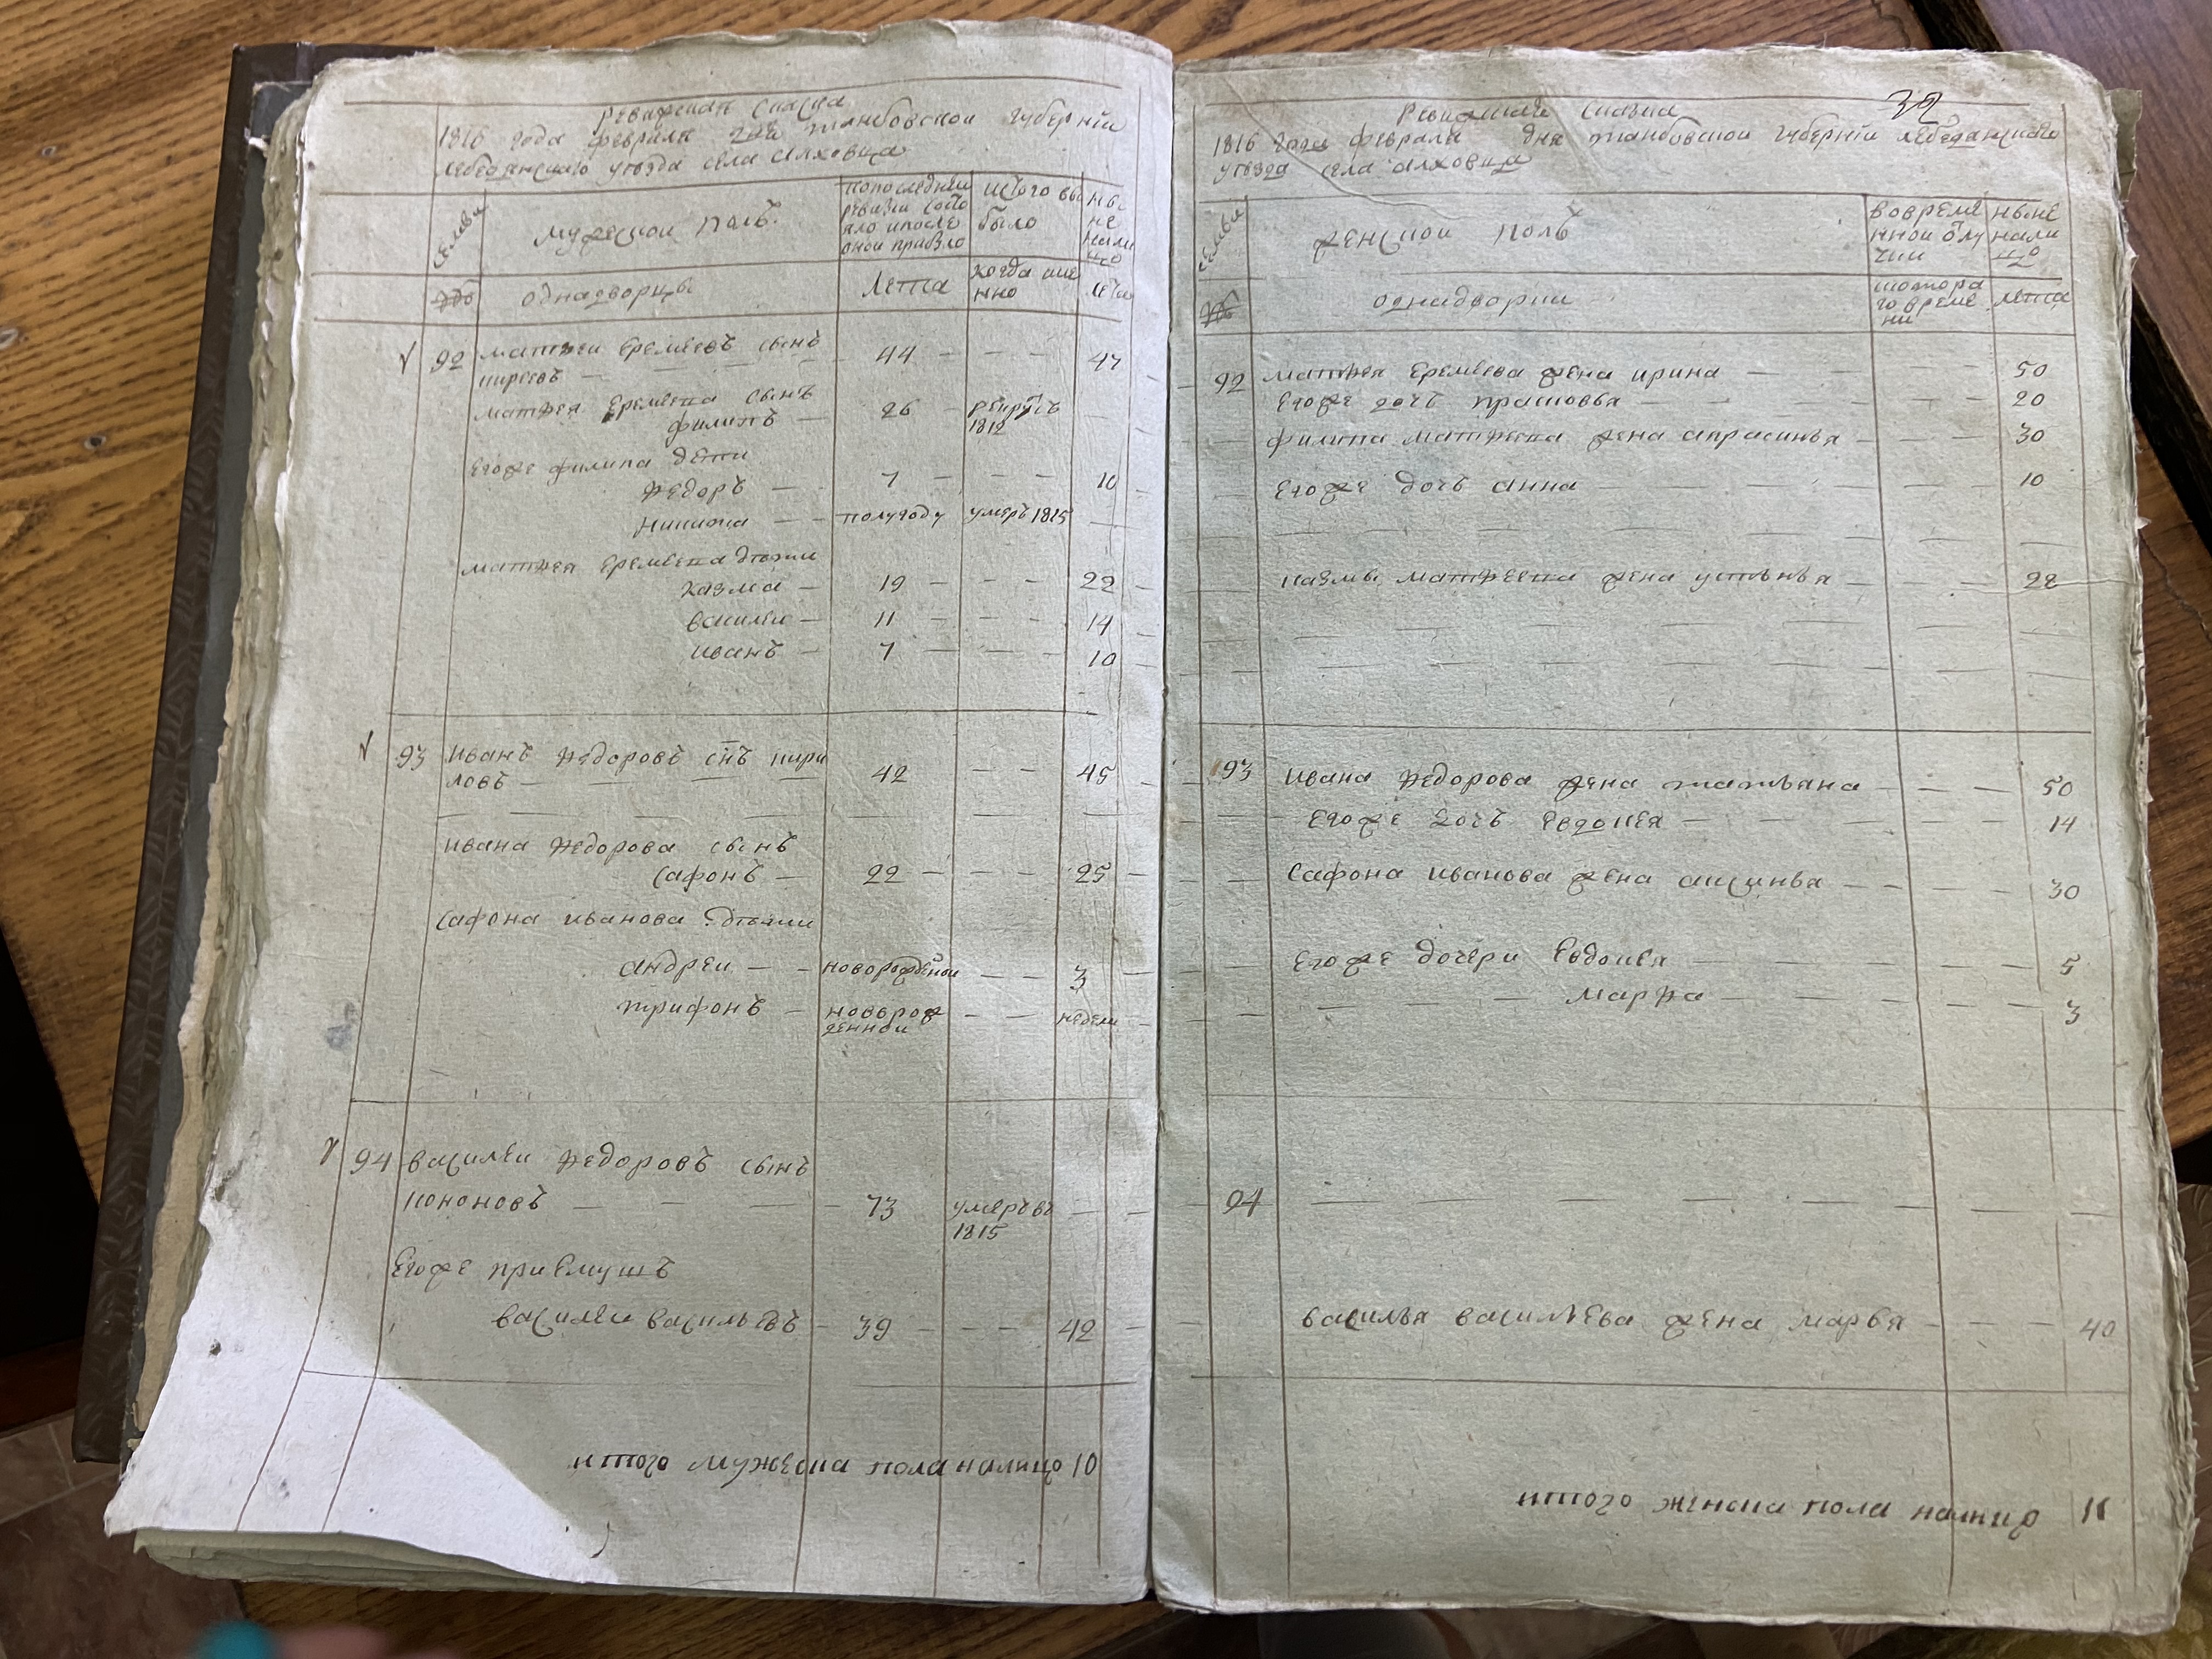 Ревижская Скаска
1816 года февраля дня танбовскои губернiи
лебедянскаго уезда села Алховца
семьи
мужескои полъ.
попоследнеи ревизи состояло ипосле онои прибыло
исзтого выбыло
ныне налицо
однадворцы
Лета
когда имянно
лета
92 матвеи Еремеевъ сынъ 44 — — — 47
киреевъ —
матвея Еремеева сынъ
филипъ — 26 — рекрутъ 1812
Егоже филипа дети
Федоръ — 7 — — — 10
Никита — полугоду умеръ 1815
матвея Еремеева дети
казма — 19 — — — 22
василеи — 11 — — — 14
иванъ — 7 — — — 10
93 иванъ Федоровъ снъ кири 42 — — 45
ловъ — — — —
ивана Федорова сынъ
Сафонъ — 22 — — — 25
Сафона иванова дети
андреи — — новорожденои — — 3
трифонъ — новорож — — недели
денной
94 василеи Федоровъ сынъ
Кононовъ — — — 73 умеръ въ
1815
Егоже приемушъ
василеи васильевъ — 39 — — — 42
итого мужеска пола налицо 10
32
Ревижская Сказка
1816 года февраля дня танбовскои губернiи лебедянскаго
уезда села алховца
семьи
женскои полъ
вовременнои отлучки
ныне налицо
однадворки
скотораго времени
лета
92 матвея Еремеева жена ирина — 50
Егоже дочь прасковья — 20
филипа матвеева жена апрасинья — 30
Егоже дочь анна 10
казмы матвеева жена устинья — 22
93 ивана Федорова жена татьяна — 50
Егоже дочь Евдокея — 14
Сафона иванова жена аксинья — 30
Егоже дочери Евдокея — 5
марфа — 3
94
василья васильева жена марья — 40
итого женска пола налицо 11